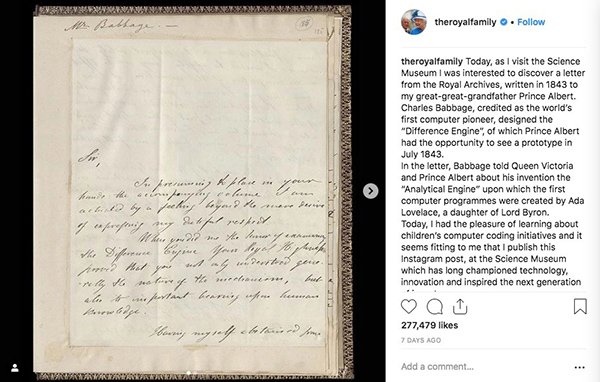 Mr Babbage. —
Sir,
In presuming to place in your
hands the accompanying volume I am
actuated by a feeling beyond the mere desire
of expressing my dutiful respect
When you did me the honor of examining
the Difference Engine Your Royal Highness
proved that you not only understood gene-
rally the nature of the mechanism, but
also its important bearing upon human
Knowledge.
Having myself abstained from
theroyalfamily • Follow
theroyalfamily Today, as I visit the Science
Museum I was interested to discover a letter
from the Royal Archives, written in 1843 to
my great-great-grandfather Prince Albert.
Charles Babbage, credited as the world's
first computer pioneer, designed the
“Difference Engine”, of which Prince Albert
had the opportunity to see a prototype in
July 1843.
In the letter, Babbage told Queen Victoria
and Prince Albert about his invention the
“Analytical Engine” upon which the first
computer programmes were created by Ada
Lovelace, a daughter of Lord Byron.
Today, I had the pleasure of learning about
children's computer coding initiatives and it
seems fitting to me that I publish this
Instagram post, at the Science Museum
which has long championed technology,
innovation and inspired the next generation
277,479 likes
7 DAYS AGO
Add a comment...